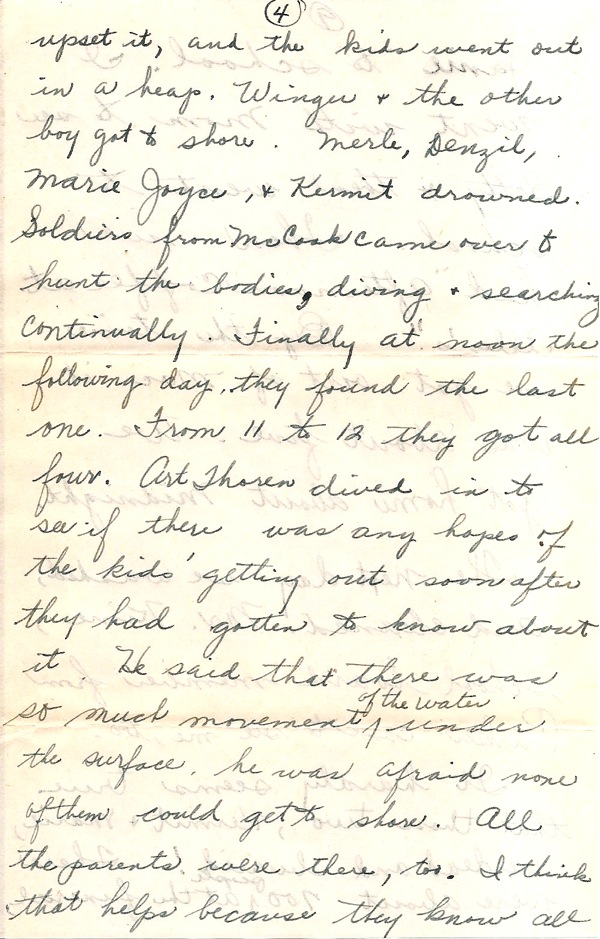 4
upset it, and the kids went out
in a heap. Winger + the other
boy got to shore. Merle, Denzil,
Marie Joyce, + Kermit drowned.
Soldiers from McCook came over to
hunt the bodies, diving + searching
continually. Finally at noon the
following day, they found the last
one. From 11 to 12 they got all
four. Art Thoren dived in to
see if there was any hopes of
the kids' getting out soon after
they had gotten to know about
it. He said that there was
of the water
so much movement under
the surface, he was afraid none
of them could get to shore. All
the parents were there, too. I think
that helps because they know all